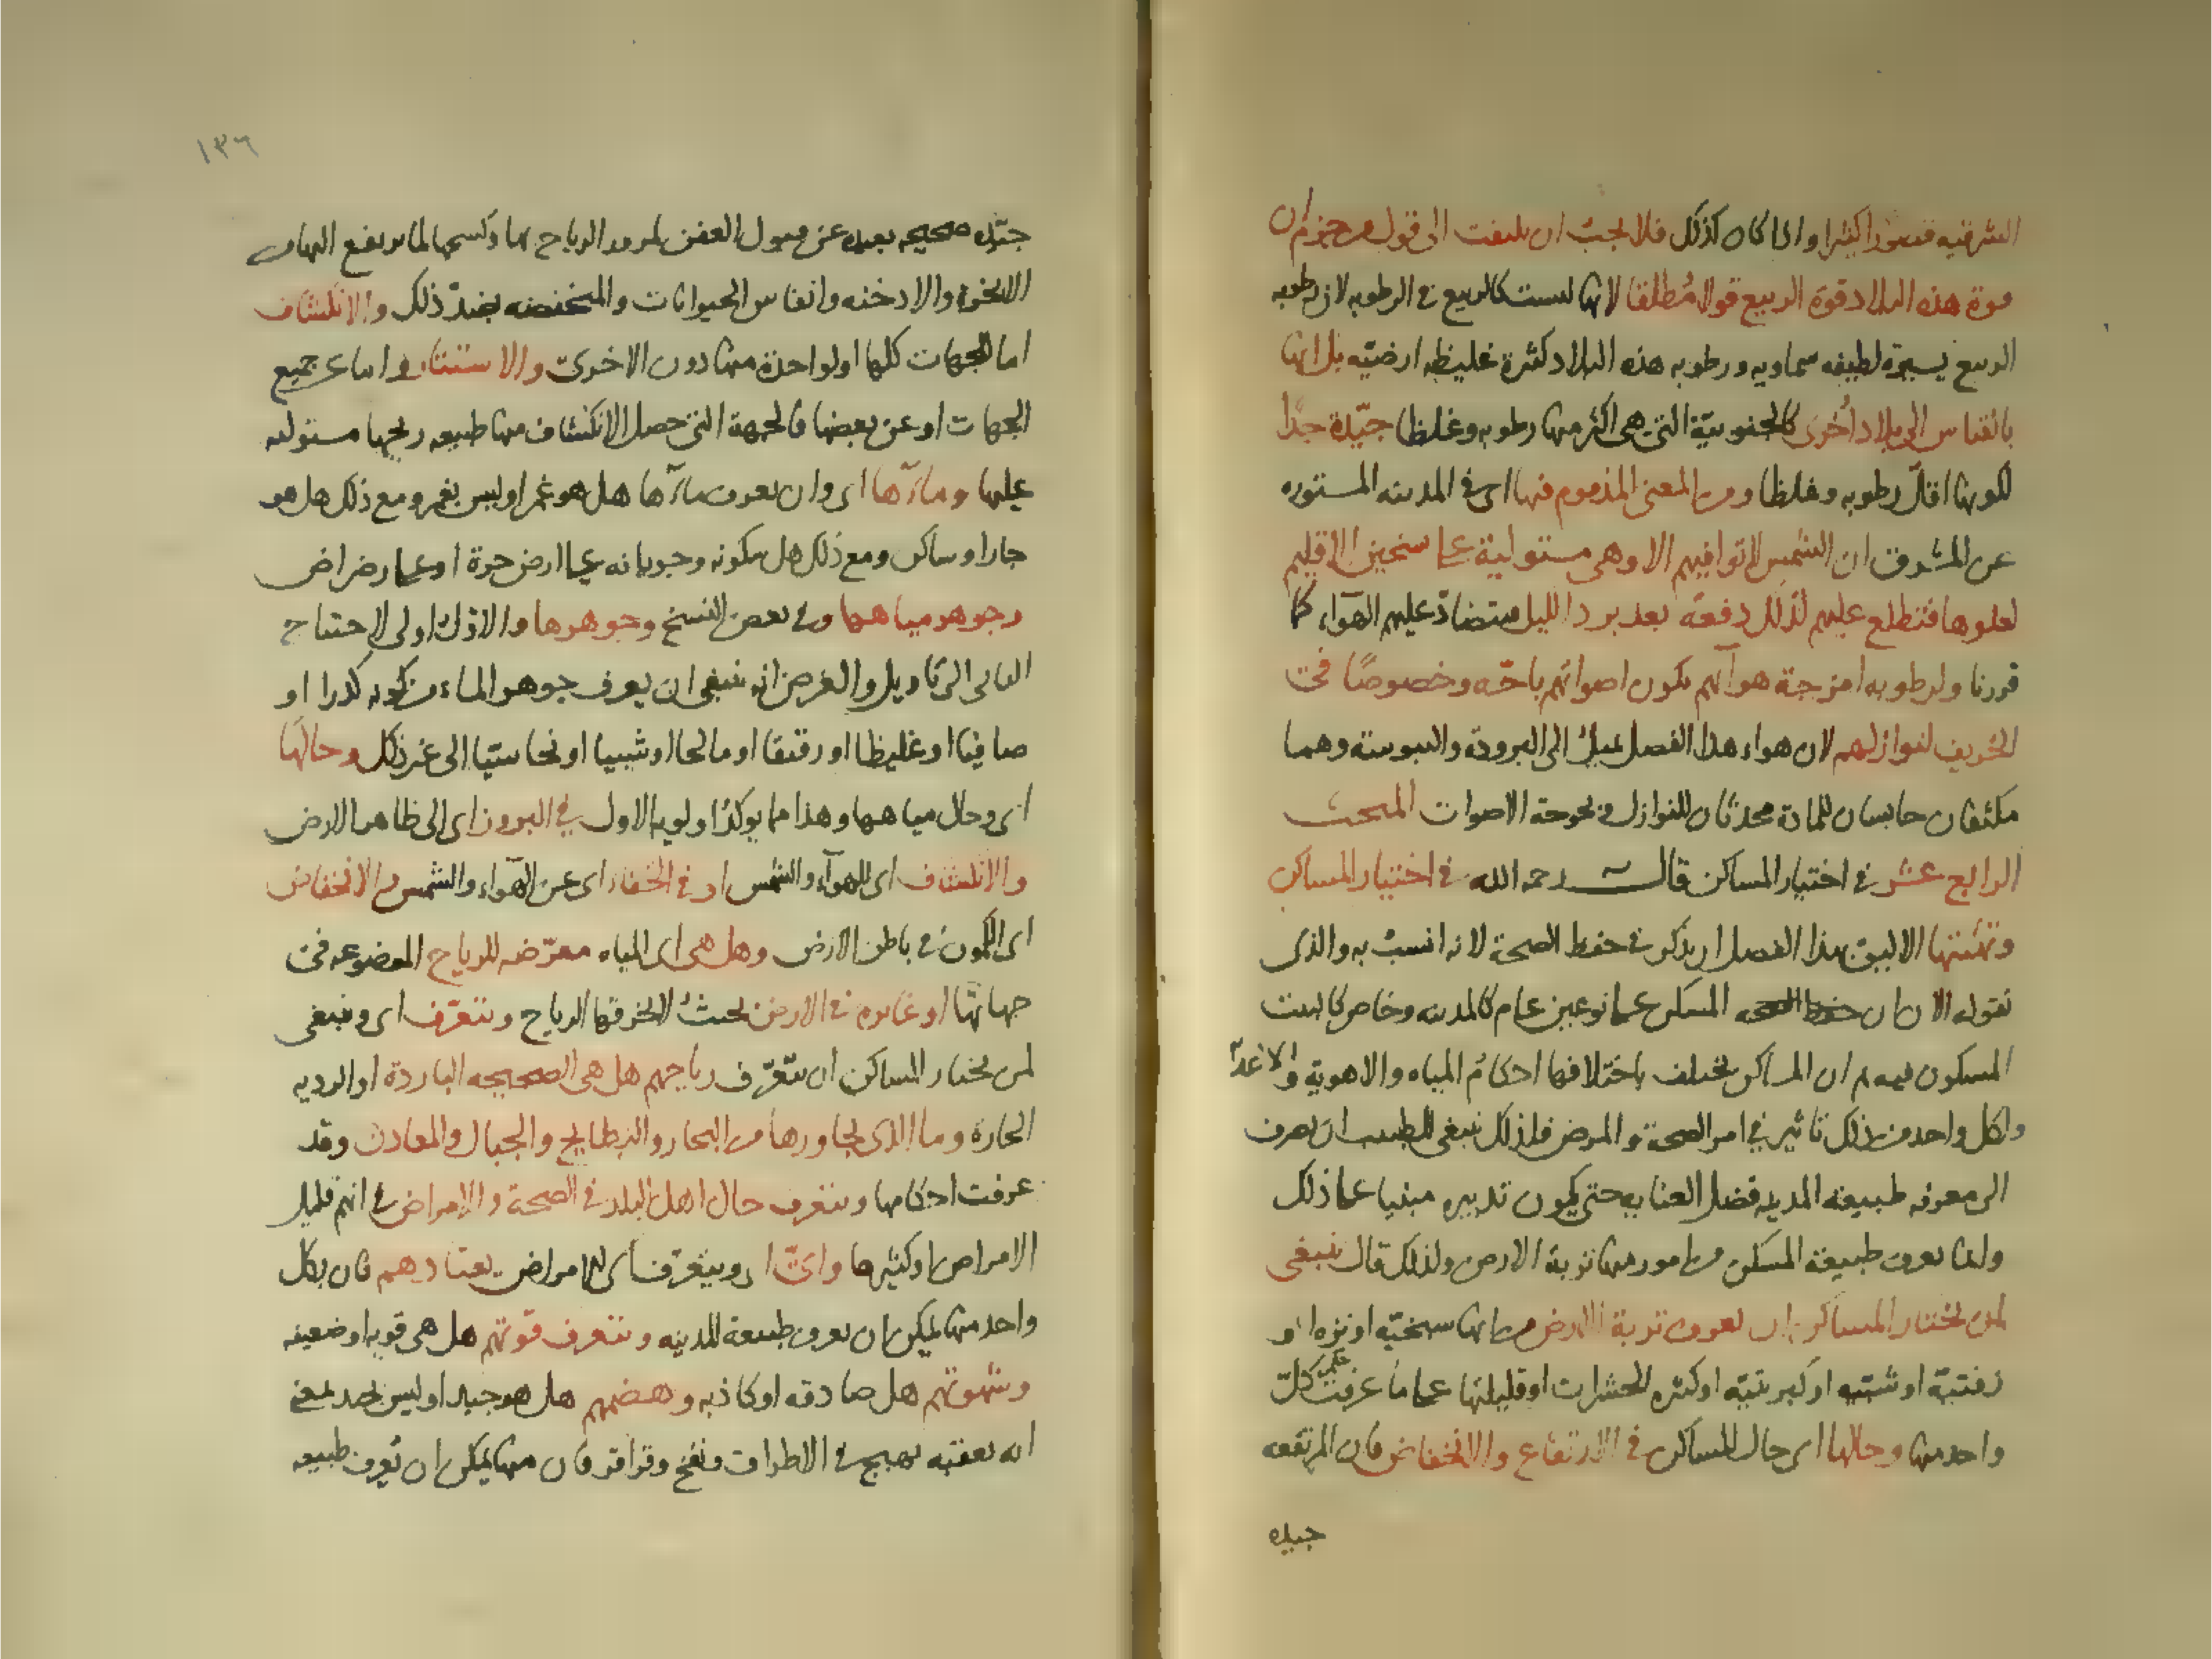 الشرقيه قصورا كثيرا واذا كان كذلك فلا يجب ان يلتفت الى قول من جزم ان
قوة هذه البلاد قوة الربيع قولا مُطلقا لانها ليست كالربيع في الرطوبه لان رطوبه
الربيع يسيرة لطيفه سماويه ورطوبه هذه البلاد كثيرة غليظه ارضيّه بل انها
بالقياس الى بلاد اُخرى كالجنوبيّة التي هي اكثر منها رطوبه وغلظا جيّدة جدّا
لكونها اقلّ رطوبه وغلظا ومن المعنى المذموم فيها اى في المدينه المستوره
عن المشرق ان الشمس لا توافيهم الا وهى مستولية على تسخين الاقليم
لعلوها فتطلع عليهم لذلك دفعة بعد برد الليل متضادّ عليهم الهوآء كما
قررنا ولرطوبه امزجة هوآئهم يكون اصواتهم باحّه وخصوصًا في
الخريف لنوازلهم لان هواء هذا الفصل يميل الى البرودة واليبوسة وهما
مكثفان حابسان للمادة محدثان للنوازل وبحوحة الاصوات المبحث
الرابع عشر في اختيار المساكن قال رحمه الله في اختيار المساكن
وتهيئتها الاليق بهذا الفصل ان يذكر في حفظ الصحة لانه انسب به والذى
نقوله الان ان المسكن على نوعين عام كالمدينه وخاص كالبيت
المسكون فيه ثم ان المساكن يختلف باختلافها احكام المياه والاهوية والاغذية
ولكل واحد من ذلك تاثير في امر الصحة والمرض فلذلك ينبغى للطبيب ان يصرف
الى معرفه طبيعة المدينه فضل العنايه حتى يكون تدبيره مبنيا على ذلك
وانما يعرف طبيعة المسكن من امور منها تربة الارض ولذلك قال ينبغى
لمن يختار المساكن ان يعرف تربة الارض من انها سبخيّه او نزه او
زفتيّة او شبّيه او كبريتيّه او كثيره الحشرات او قليلتها على ما عرفت حكم كلّ
واحد منها وحالها اى حال المساكن في الارتفاع والانخفاض فان المرتفعه
جيده
١٣٦
جيّده صحيحه بعيده عن قبول العفن لمرور الرياح بها وكسحها لما يرتفع اليها من
الابخرة والادخنه وانفاس الحيوانات والمنخفضه بضدّ ذلك والانكشاف
اما للجهات كلها او لواحدة منها دون الاخرى والاستتار واما عن جميع
الجهات او عن بعضها فالجهة التي حصل الانكشاف منها طبيعه ريحها مستوليه
عليها ومآءها اى وان يعرف مآءها هل هو غمر او ليس بغمر ومع ذلك هل هو
جار او ساكن ومع ذلك هل سكونه وجريانه على ارض حرة او على رضراض
وجوهر مياهها وفي بعض النسخ وجوهرها والاول اولى لاحتياج
الثانى الى تاويل والغرض انه ينبغى ان يعرف جوهر الماء من كونه كدرا او
صافيا او غليظا او رقيقا او مالحا او شبيا او نحاسيّا الى غير ذلك وحالها
اى وحال مياهها وهذا مما يوكد اولويه الاول في البروز اى الى ظاهر الارض
والانكشاف اى للهوآء والشمس او في الخفاء اى عن الهوآء والشمس والانخفاض
اى الكمون في باطن الارض وهل هى اى المياه معرّضه للرياح الموضوعه في
جهاتها او غايره في الارض بحيث لا يخرقها الرياح ويتعرّف اى وينبغى
لمن يختار المساكن ان يتعرّف رياحهم هل هى الصحيحه الباردة او الرديه
الحارة وما الذى يجاورها من البحار والبطايح والجبال والمعادن وقد
عرفت احكامها ويتعرف حال اهل البلد في الصحة والامراض في انهم قليل
الامراض او كثيرها واىّ اى ويتعرّف اى الامراض يعتادهم فان بكل
واحد منها يمكن ان يعرف طبيعة المدينه ويتعرف قوتهم هل هى قويه او ضعيفه
وشهوتهم هل صادقه او كاذبه وهضمهم هل هو جيد او ليس بجيد بمعنى
انه يعقبه تهيج في الاطراف ونفخ وقراقر فان منها يمكن ان يعرف طبيعه